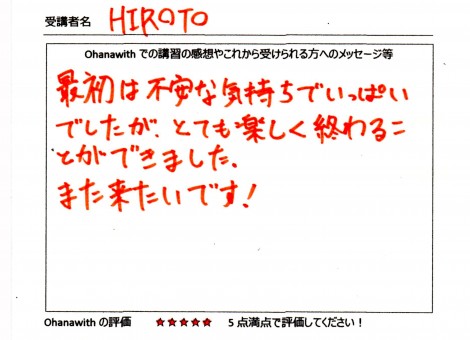 受講者名 HIROTO
Ohanawith での講習の感想やこれから受けられる方へのメッセージ等
最初は不安な気持ちでいっぱい
でしたが、とても楽しく終わるこ
とができました。
また来たいです!
Ohanawith の評価 ★★★★★ 5 点満点で評価してください!